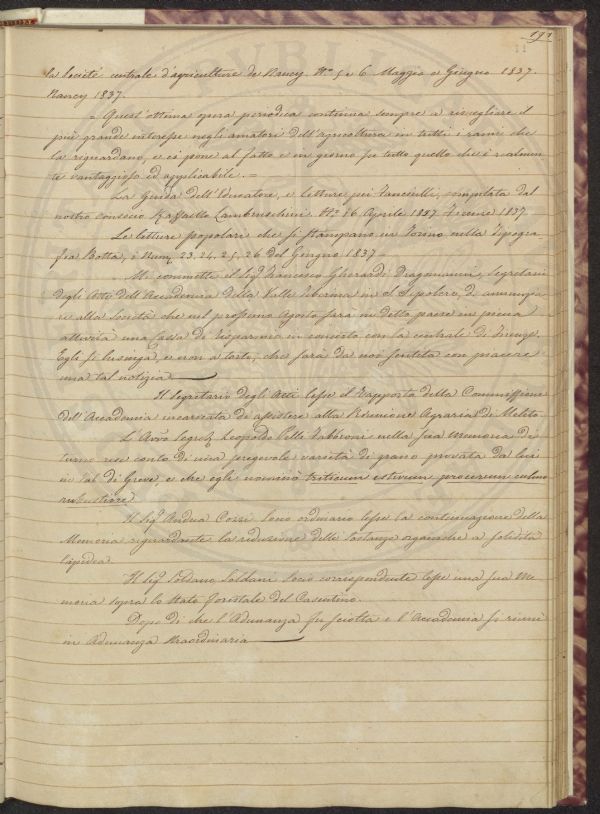 191
11
la Societé centrale d'agriculture de Nancy N.º 5 e 6 Maggio e Giugno 1837.
Nancy 1837.
= Quest'ottima opera periodica continua sempre a risvegliare il
più grande interesse negli amatori dell'agricoltura in tutti i rami che
la riguardano, e ci pone al fatto e in giorno su tutto quello che è realmen
te vantaggioso ed applicabile. =
La Guida dell'Educatore, e letture pei fanciulli, compilata dal
nostro consocio Raffaello Lambruschini N.º 16 Aprile 1837 Firenze 1837
Le letture popolari che si stampano in Torino nella Tipogra
fia Botta, i Num. 23, 24, 25, 26 del Giugno 1837 =
Mi commette il Sig.r Francesco Gherardi Dragomanni, Segretario
degli Atti dell'Accademia della Valle Tiberina in S. Sepolcro, di annunzia
re alla Società che nel prossimo Agosto sarà in detto paese in piena
attività una Cassa di Risparmio in conserto con la centrale di Firenze.
Egli si lusinga, e non a torto, che sarà da noi sentita con piacere
una tal notizia
Il Segretario degli Atti lesse il Rapporto della Commissione
dell'Accademia incaricata di assistere alla Riunione Agraria di Meleto.
L'Avv.o Leopoldo Pelli Fabbroni nella sua Memoria di
turno rese conto di una pregevole varietà di grano provata da lui
in Val di Greve, e che egli nominò triticum estivum procerum culmo
robustiore
Il Sig.r Andrea Cozzi Socio ordinario lesse la continuazione della
Memoria riguardante la riduzione delle sostanze organiche a solidità
lapidea.
Il Sig.r Soldano Soldani Socio corrispondente lesse una sua Me
moria sopra lo stato forestale del Casentino.
Dopo di che l'Adunanza fu sciolta e l'Accademia si riunì
in Adunanza straordinaria